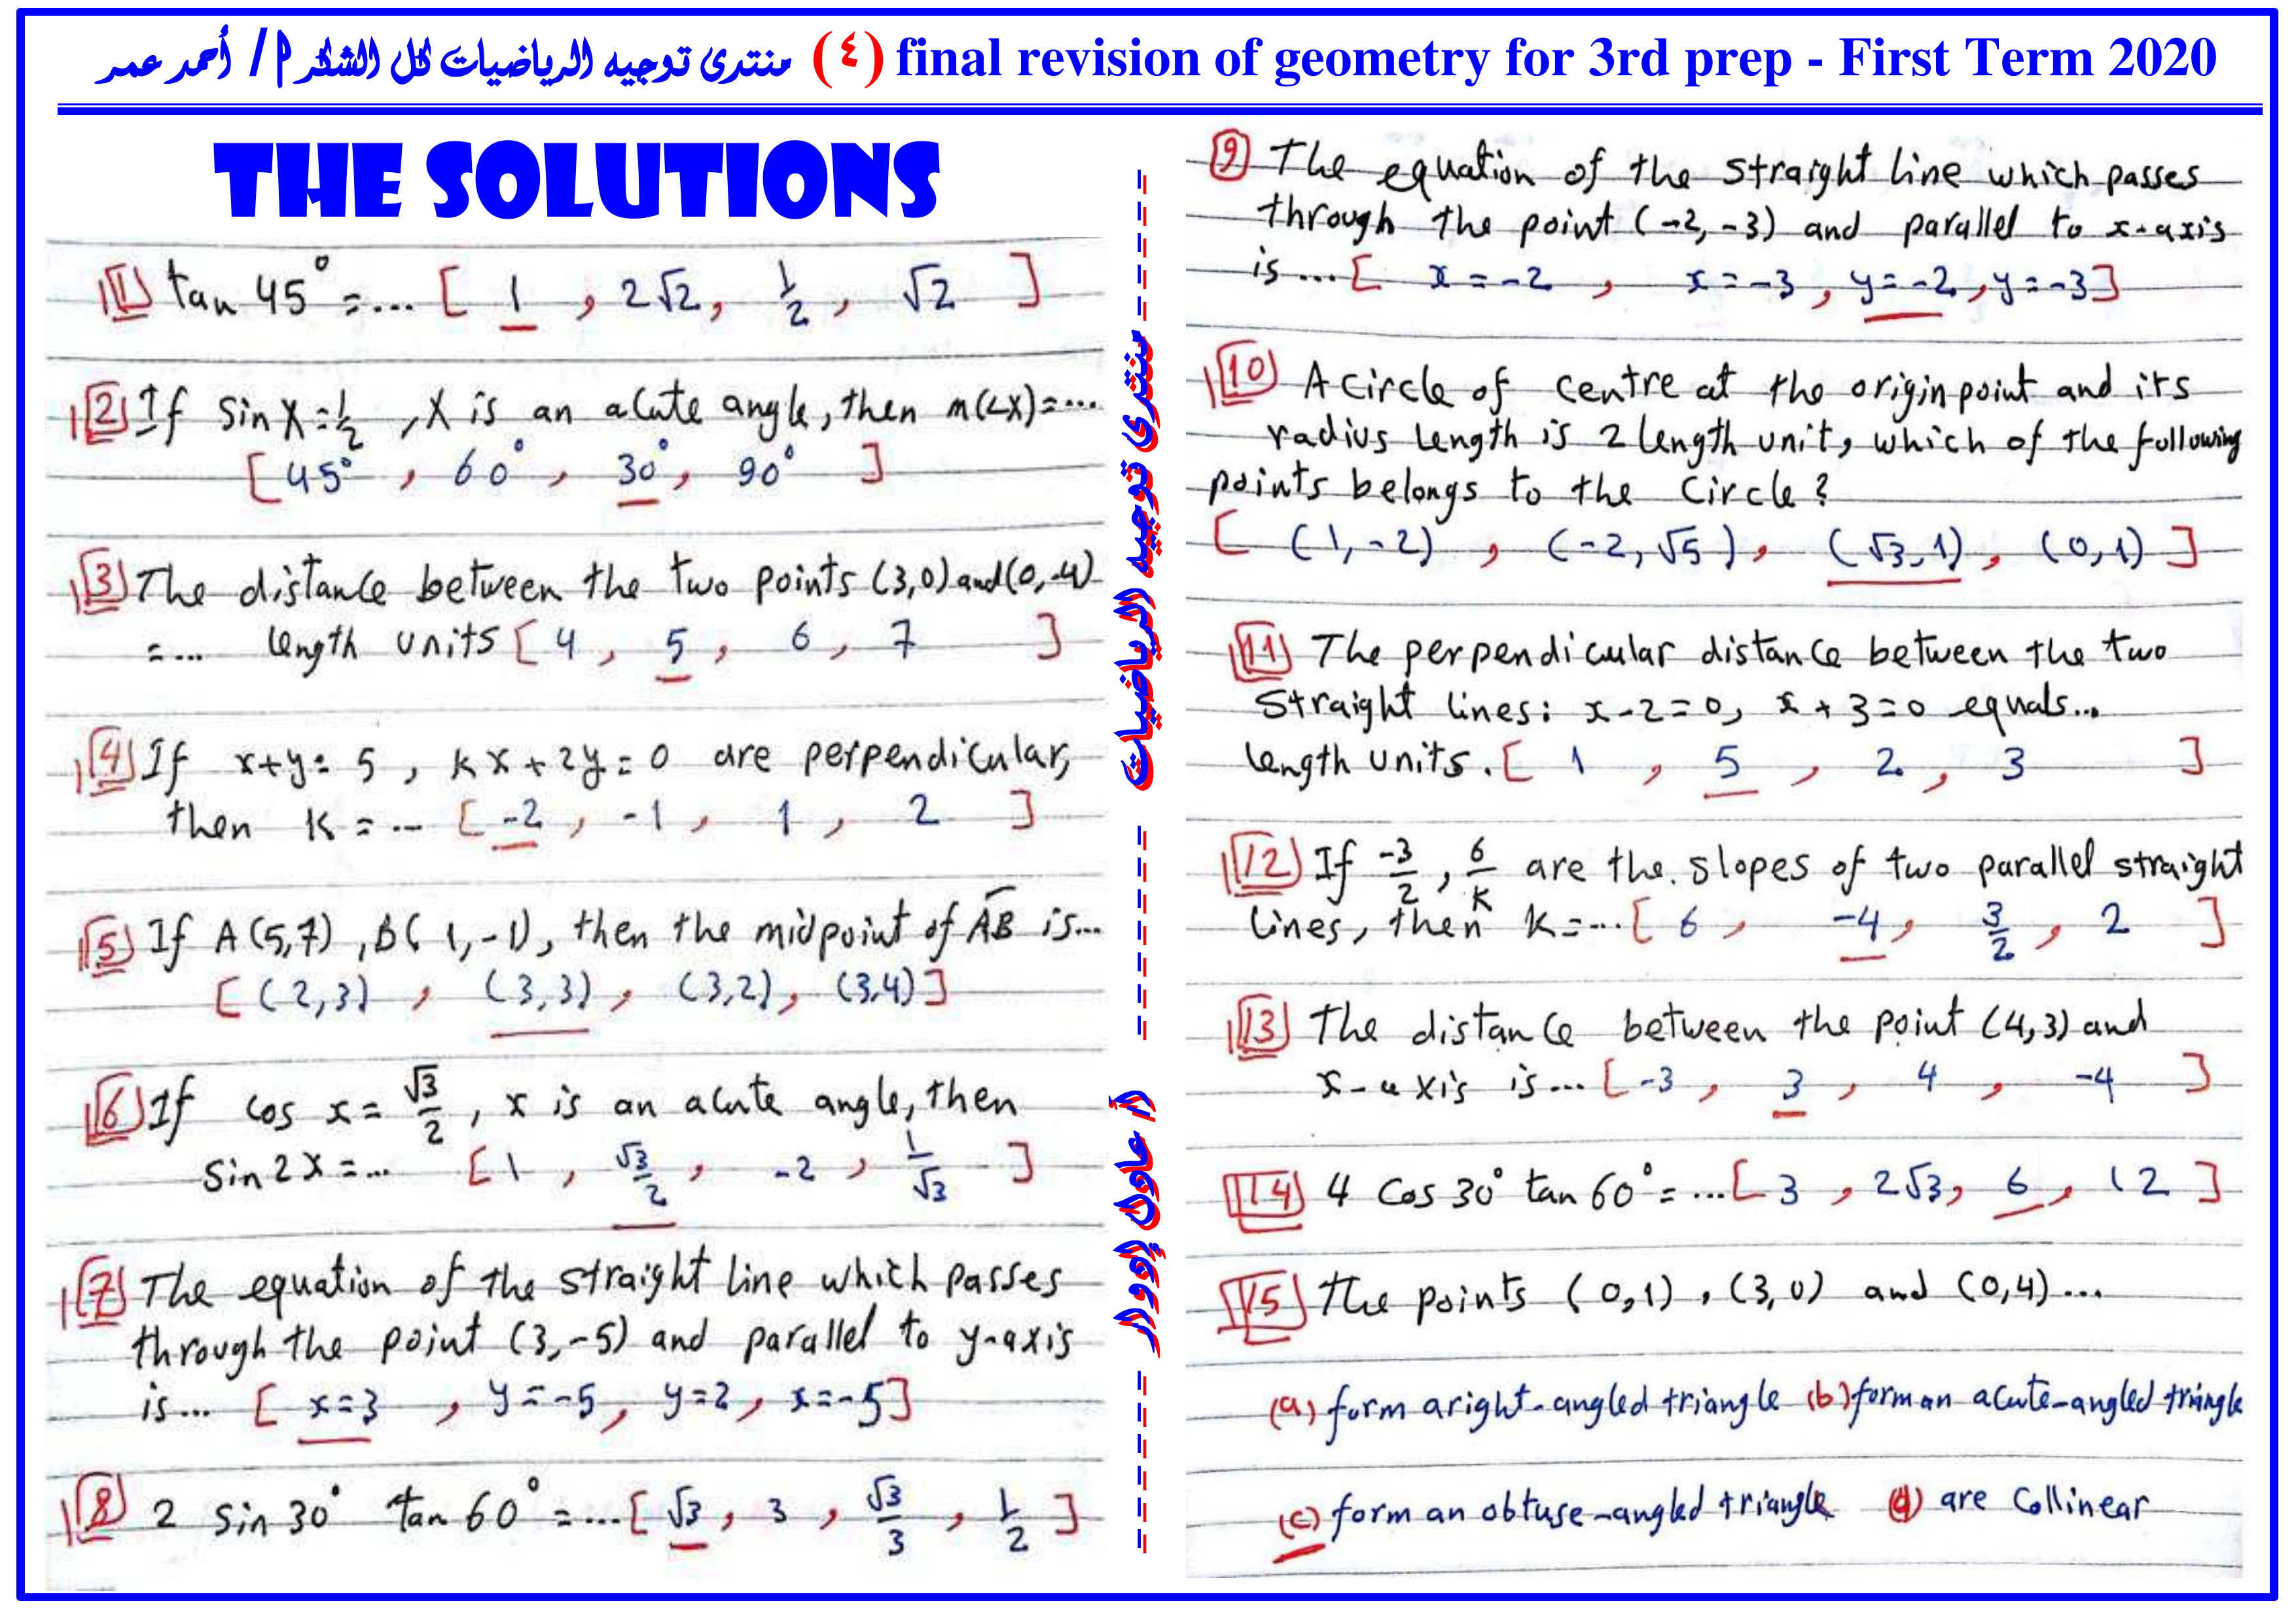 منتدى توجيه الرياضيات لكل الشكر أ / أحمد عمر (٤) final revision of geometry for 3rd prep - First Term 2020
THE SOLUTIONS
1 tan 45° = ... [ 1 , 2√2 , 1/2 , √2 ]
2 If sin X = 1/2 , X is an acute angle, then m(∠X) = ...
[ 45° , 60° , 30° , 90° ]
3 The distance between the two points (3,0) and (0,-4)
= ... length units [ 4 , 5 , 6 , 7 ]
4 If x+y = 5 , kx + 2y = 0 are perpendicular,
then k = ... [ -2 , -1 , 1 , 2 ]
5 If A(5,7) , B(1,-1), then the midpoint of AB is ...
[ (2,3) , (3,3) , (3,2) , (3,4) ]
6 If cos x = √3/2 , x is an acute angle, then
sin 2x = ... [ 1 , √3/2 , -2 , 1/√3 ]
7 The equation of the straight line which passes
through the point (3,-5) and parallel to y-axis
is ... [ x=3 , y=-5 , y=2 , x=-5 ]
8 2 sin 30° tan 60° = ... [ √3 , 3 , √3/3 , 1/2 ]
منتدى توجيه الرياضيات
أ / عادل إدوار
9 The equation of the straight line which passes
through the point (-2,-3) and parallel to x-axis
is ... [ x=-2 , x=-3 , y=-2 , y=-3 ]
10 A circle of centre at the origin point and its
radius length is 2 length unit, which of the following
points belongs to the circle ?
[ (1,-2) , (-2,√5) , (√3,1) , (0,1) ]
11 The perpendicular distance between the two
straight lines: x-2=0, x+3=0 equals ...
length units. [ 1 , 5 , 2 , 3 ]
12 If -3/2 , 6/k are the slopes of two parallel straight
lines, then k = ... [ 6 , -4 , 3/2 , 2 ]
13 The distance between the point (4,3) and
x-axis is ... [ -3 , 3 , 4 , -4 ]
14 4 cos 30° tan 60° = ... [ 3 , 2√3 , 6 , 12 ]
15 The points (0,1) , (3,0) and (0,4) ...
(a) form a right-angled triangle (b) form an acute-angled triangle
(c) form an obtuse-angled triangle (d) are collinear